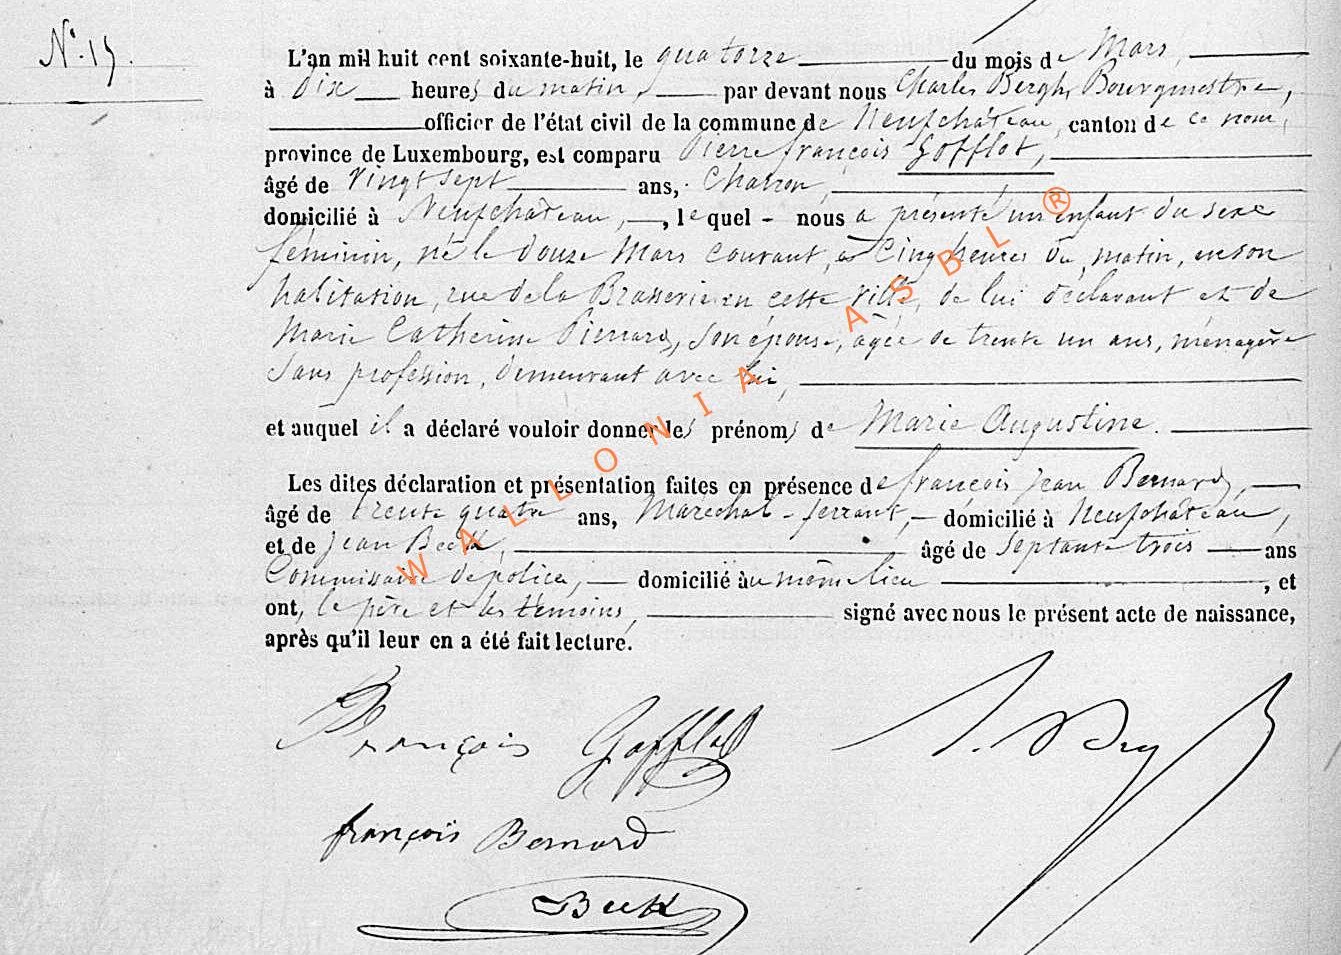 N° 15.
L'an mil huit cent soixante-huit, le quatorze du mois de Mars,
à dix heures du matin, par devant nous Charles Bergh, Bourgmestre,
officier de l'état civil de la commune de Neufchâteau, canton de ce nom,
province de Luxembourg, est comparu Pierre françois Gofflot,
âgé de vingt sept ans, Charron,
domicilié à Neufchâteau, lequel - nous a présenté un enfant du sexe
féminin, né le douze Mars courant, à Cinq heures du matin, en son
habitation, rue de la Brasserie en cette ville, de lui déclarant et de
Marie Catherine Pierrard, son épouse, agée de trente un ans, ménagère
sans profession, demeurant avec lui,
et auquel il a déclaré vouloir donner les prénoms de Marie Augustine.
Les dites déclaration et présentation faites en présence de françois Jean Bernard,
âgé de trente quatre ans, Maréchal-ferrant - domicilié à Neufchâteau,
et de Jean Beck, âgé de Septante trois ans
Commissaire de police, domicilié au même lieu, et
ont, le père et les témoins, signé avec nous le présent acte de naissance,
après qu'il leur en a été fait lecture.
François Gofflot
françois Bernard
Beck
WALLONIA ASBL ®